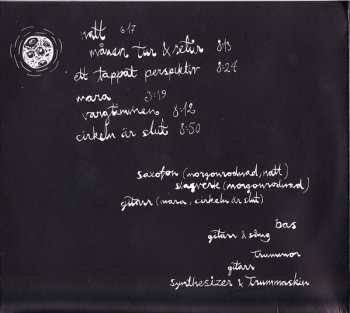 natt 6:17
månen tar & setür 8:13
ett tappat perspektiv 8:24
mara 3:19
vargtimmen 8:12
cirkeln är slut 8:50
saxofon (morgonrodnad, natt)
slagverk (morgonrodnad)
gitarr (mara, cirkeln är slut)
bas
gitarr & sång
trummor
gitarr
synthesizer & trummaskin